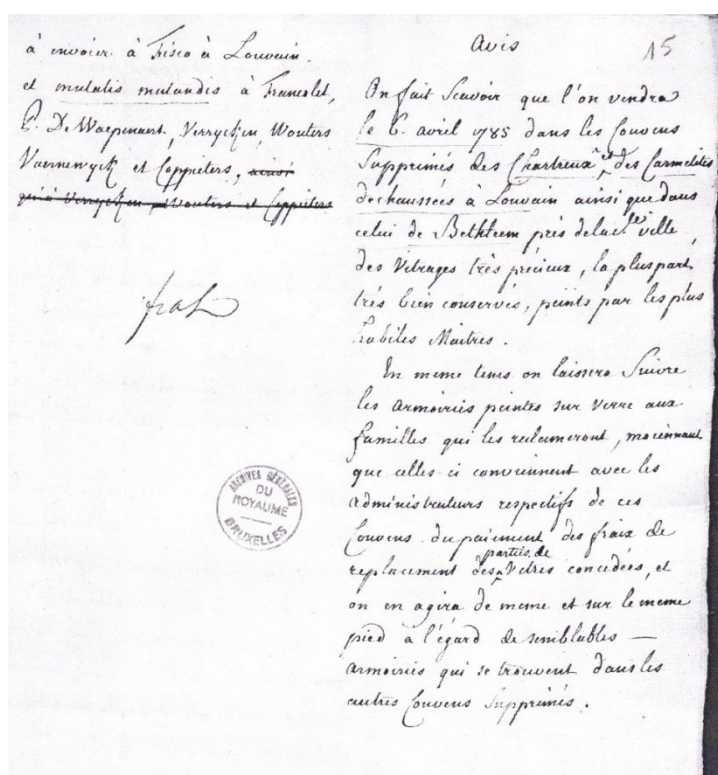 à envoier à Frisco à Louvain
et mutatis mutandis à Francolet,
P. De Waepenaert, Verrycken, Wouters
Vaernewyck et Coppieters, ainsi
qu'à Verrycken, Wouters et Coppieters
ARCHIVES GÉNÉRALES
DU
ROYAUME
BRUXELLES
15
Avis
On fait Scavoir que l'on vendra
le 6. avril 1785 dans les Couvens
Supprimés des Chartreux et des Carmelites
dechaussées à Louvain ainsi que dans
celui de Bethleem près de la de ville,
des Vitrages très précieux, la pluspart
très bien conservés, peints par les plus
habiles Maitres.
En meme tems on laissera Suivre
les armoiries peintes sur verre aux
familles qui les reclameront, moiennant
que celles-ci conviennent avec les
administrateurs respectifs de ces
Couvens du paiement des fraix de
replacement des parties de Vitres concedées, et
on en agira de meme et sur le meme
pied à l'égard de semblables —
armoiries qui se trouvent dans les
autres Couvens Supprimés.